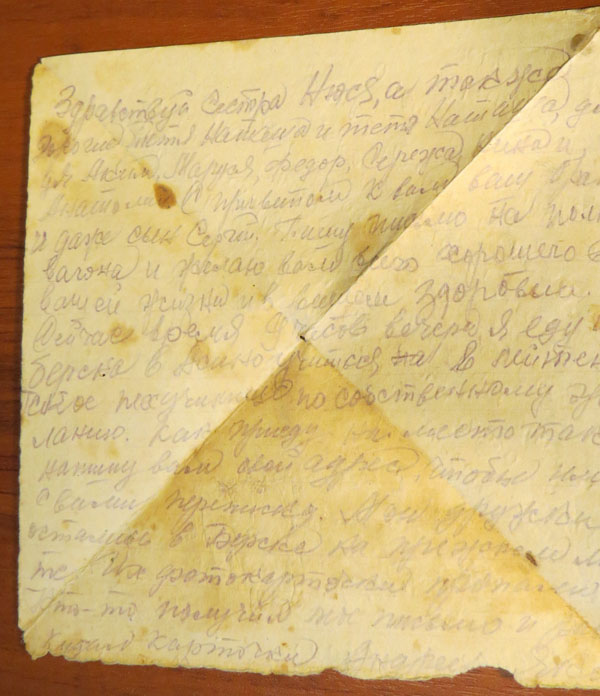 Здравствуй Сестра Нюся, а также
тетя Наташа и тетя Наташа, дя
дя Маруся, Федор, Сережа, Нина и
Анатолий. С приветом к вам ваш бра
и даже сын Сергей. Пишу письмо на полк
вагона и желаю вам всего хорошего в
вашей жизни и в вашем здоровьи.
Сейчас время 9 часов вечера я еду
берска в учиться на в лейтен
ское по собственному
ланию. Как приеду на место так
напишу вам свой адрес, чтобы им
с вами переписку. Мои дружки
остались в Берске на прежнем м
те. Их фотокарточки
кто-то получил письмо и
карточки